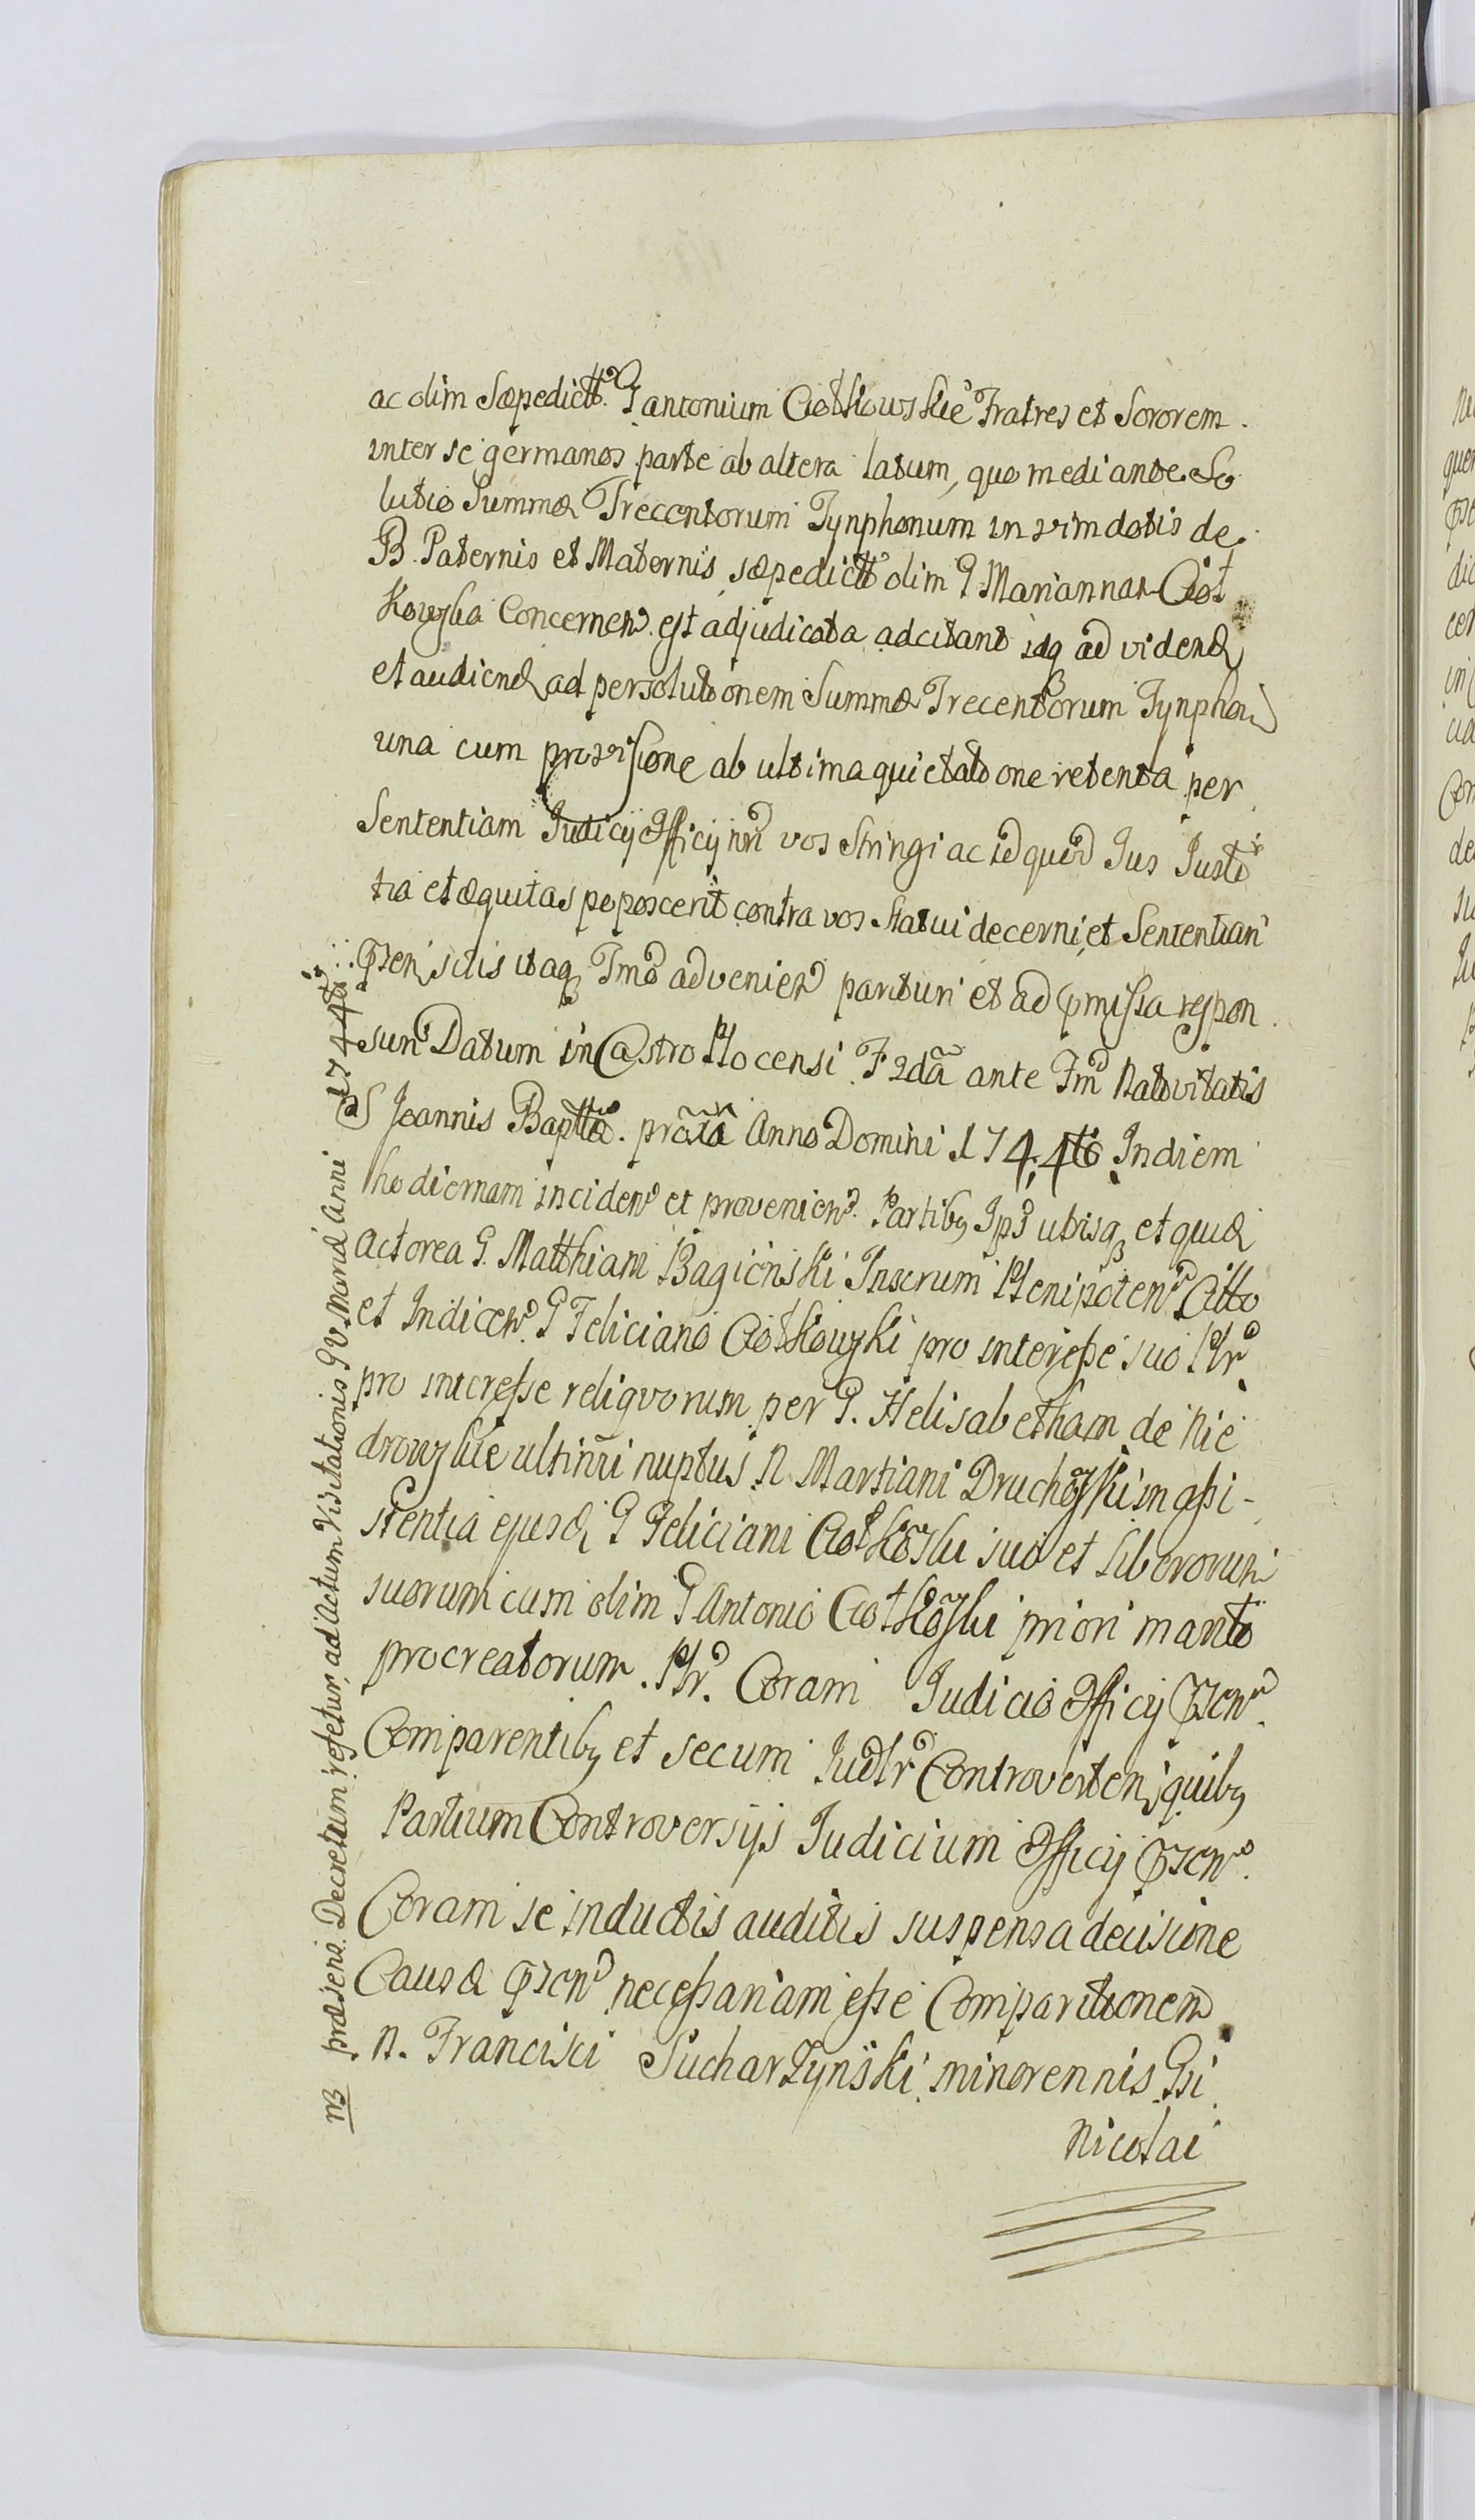 ac olim Sæpedictt. G antonium Ciołkowskie Fratres et Sororem
inter se germanos parte ab altera latum, quo mediante So
lutio Summæ Trecentorum Tynphonum in vim dotis de
B. Paternis et Maternis sæpedictt olim G Mariannæ Cioł
kowska Concernen. est adjudicata adcitant itaq ad videnđ
et audienđ ad persolutionem Summæ Trecentorum Tynphon
una cum provisione ab ultima quietatione retenta per
Sententiam Judicij Officij nri vos stringi ac id quid Jus Justi
tia et æquitas poposcerit contra vos statui decerni, et Sententian
ferri scitis itaq Tmo advenien parituri et ad pmissa respon
suri Datum in Castro Plocensi F 2dã ante Fm Nativitatis
S Joannis Baptæ. proxã Anno Domini 1744to Indiem
hodiernam inciden et provenien. Partibq Ips utrisq et quid
Actorea G. Matthiam Bagieński Inserum Plenipoten Citto
et Indicen. G Feliciano Ciołkowski pro interesse suo Plr.
pro interesse reliqvorum per G. Helisabetham de Nie
drowskie ultinri nuptus N Martiani Druchoski in assi-
stentia ejusđ G Feliciani Ciołkoski suo et liberorum
suorum cum olim G Antonio Ciołkoski priori marito
procreatorum. Plr. Coram Judicio Officij Psen.
Comparentibq et secum Judlr Controverten, quibq
Partium Controversijs Judicium Officij Psen.
Coram se inductis auditis suspensa decisione
Causæ Psen necessariam esse Comparitionem
N. Francisci Sucharzyński minorennis Gsi
Nicolai
NB præsens Decretum refetur ad Actum Visitationis BV. Mariæ Anni 1744ti